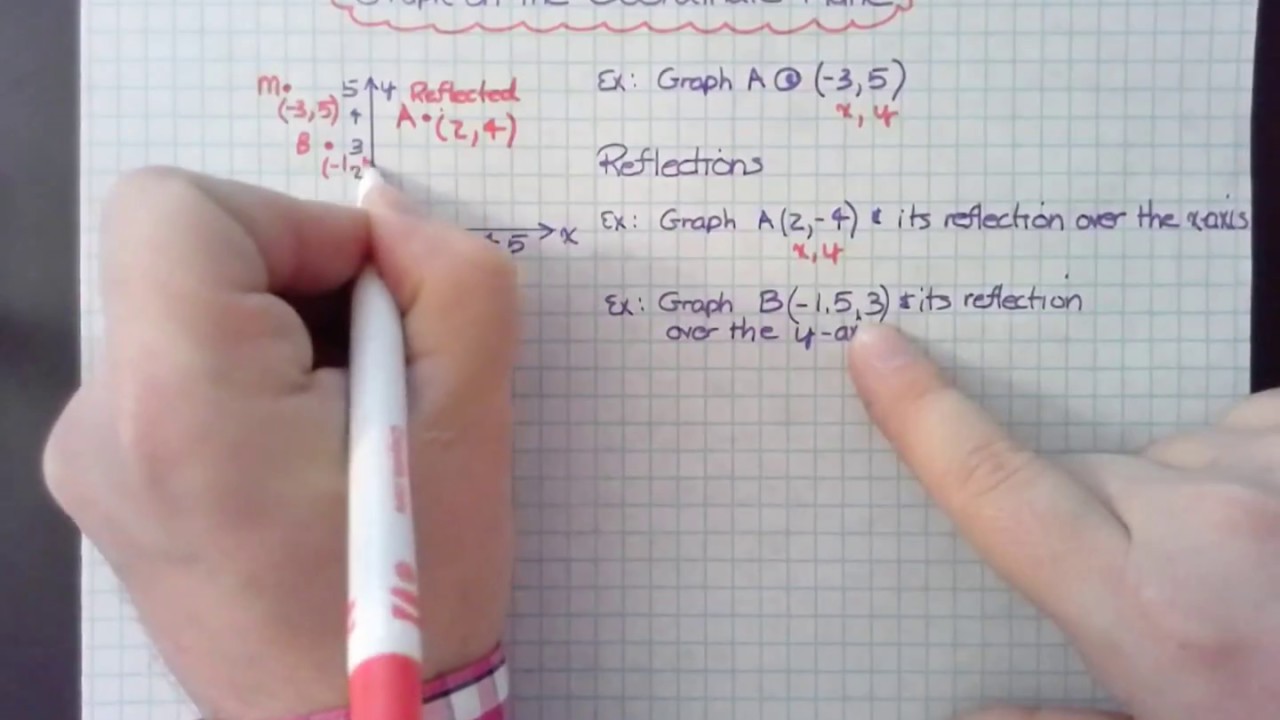 Graph on the Coordinate Plane
M
(-3,5)
5
y
Reflected
A (2,4)
4
B
3
(-1
2
5
x
Ex: Graph A @ (-3,5)
x, y
Reflections
Ex: Graph A(2,-4) & its reflection over the x-axis
x,y
Ex: Graph B(-1.5,3) & its reflection
over the y-ax